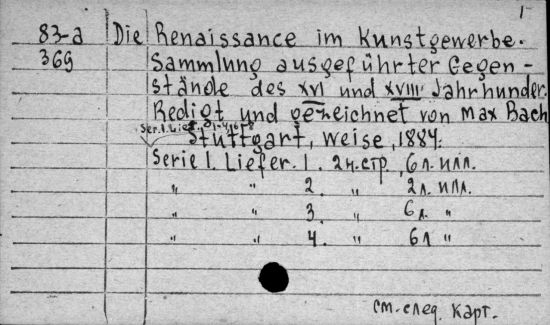 1-
83-a Die Renaissance im Kunstgewerbe.
369 Sammlung ausgeführter Gegen-
stände des XVI und XVIII Jahrhunder.
Redigt und gezeichnet von Max Bach
Ser. I. Lief.
Stuttgart, Weise, 1884.
Serie I. Liefer. 1. 2н.стр., 6 л. илл.
" " 2. " 2л. илл.
" " 3. " 6л. "
" " 4. " 6л "
см. след. карт.